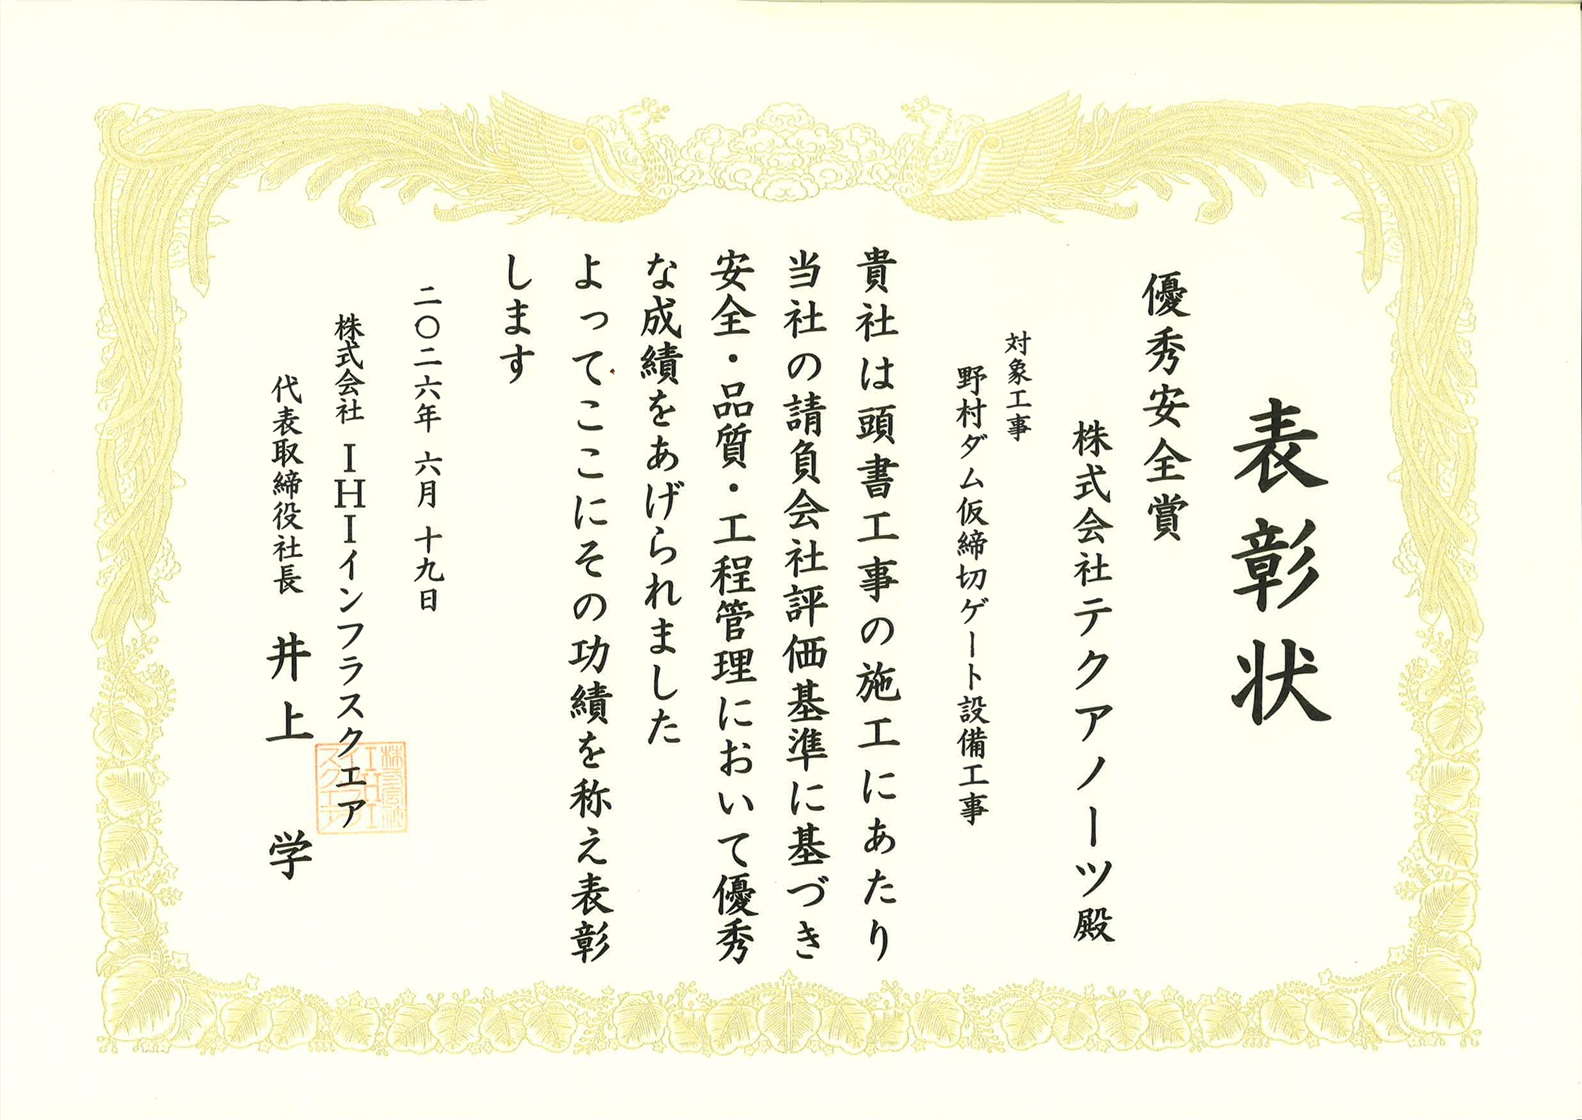 表彰状
優秀安全賞
株式会社テクアノーツ殿
対象工事
野村ダム仮締切ゲート設備工事
貴社は頭書工事の施工にあたり
当社の請負会社評価基準に基づき
安全・品質・工程管理において優秀
な成績をあげられました
よってここにその功績を称え表彰
します
二〇二六年 六月 十九日
株式会社 IHIインフラスクエア
代表取締役社長 井上 学
株式会社IHIインフラスクエア